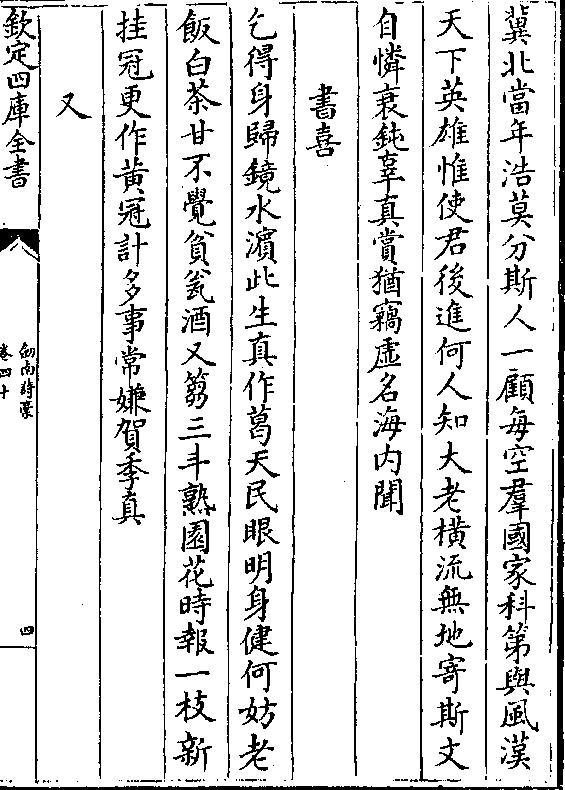 冀北當年浩莫分斯人一顧每空羣國家科第與風漢
天下英雄惟使君後進何人知大老橫流無地寄斯文
自憐衰鈍辜真賞猶竊虛名海内聞
書喜
乞得身歸鏡水濵此生真作葛天民眼明身健何妨老
飯白茶甘不覺貧瓮酒又篘三斗熟園花時報一枝新
挂冠更作黄冠計多事常嫌賀季真
又
欽定四庫全書
劒南詩藁
卷四十
四